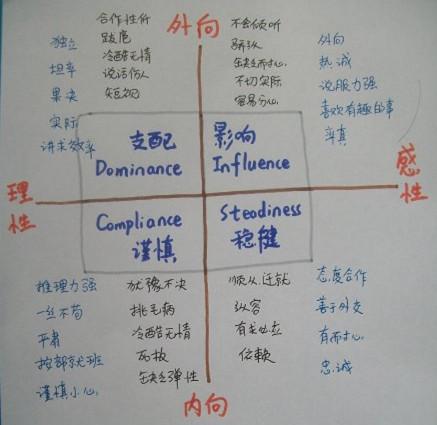 外向
独立
坦率
果决
实际
讲求效率
合作性低
跋扈
冷酷无情
说话伤人
短视
不会倾听
骄纵
缺乏耐心
不切实际
容易分心
外向
热诚
说服力强
喜欢有趣的事
率真
支配
Dominance
影响
Influence
理性
感性
Compliance
谨慎
Steadiness
稳健
推理力强
一丝不苟
严肃
按部就班
谨慎小心
犹豫不决
挑毛病
冷酷无情
死板
缺乏弹性
顺从.迁就
纵容
有求必应
态度合作
善于外交
有耐心
忠诚
内向